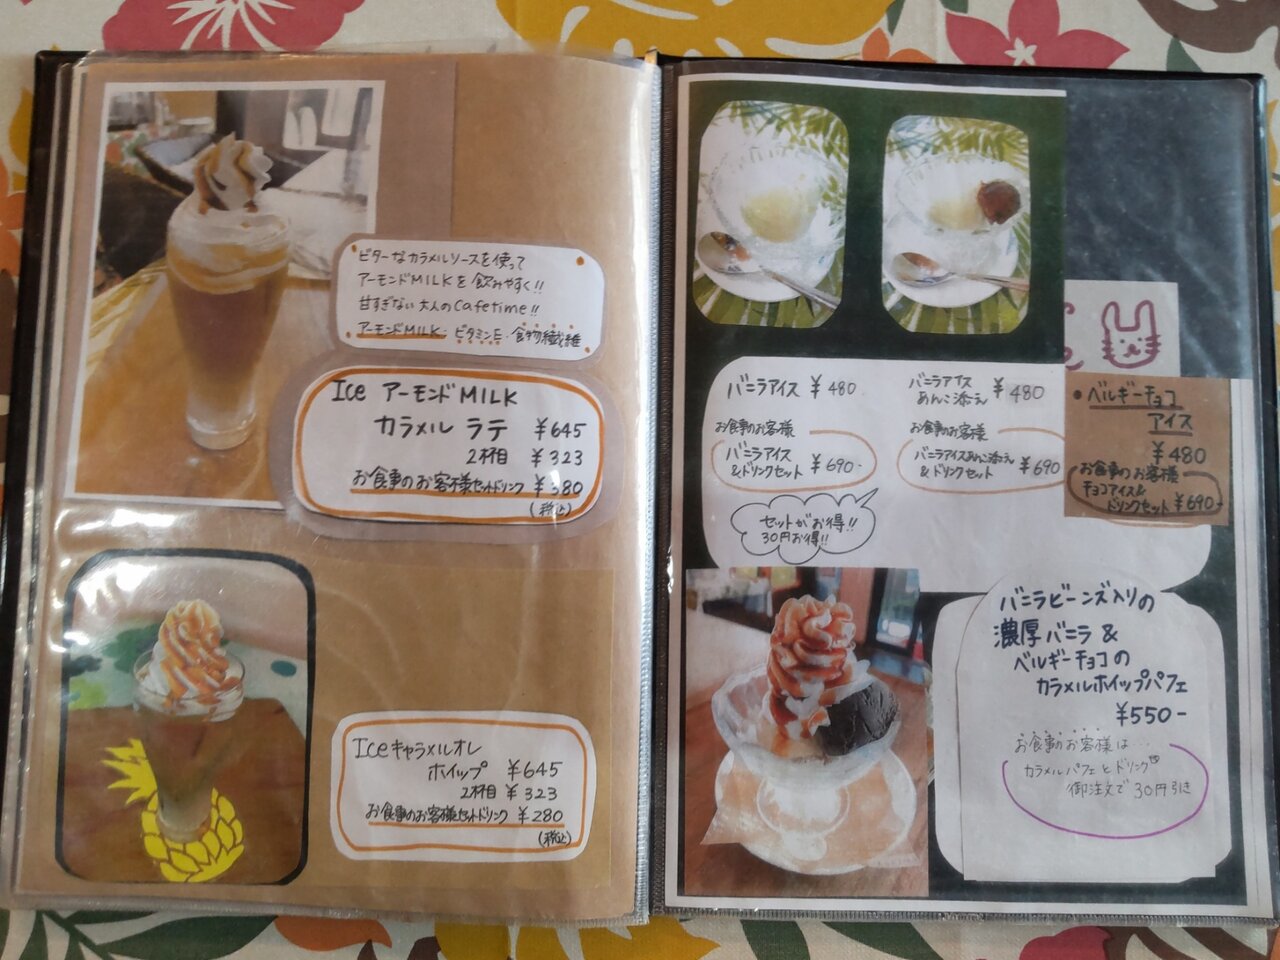 ビターなカラメルソースを使って
アーモンドMILKを飲みやすく!!
甘すぎない大人のCafetime!!
アーモンドMILK:ビタミンE・食物繊維
Ice アーモンドMILK
カラメル ラテ ¥645
2杯目 ¥323
お食事のお客様セットドリンク ¥380
(税込)
Iceキャラメルオレ
ホイップ ¥645
2杯目 ¥323
お食事のお客様セットドリンク ¥280
(税込)
バニラアイス ¥480
お食事のお客様
バニラアイス
&ドリンクセット ¥690-
セットがお得!!
30円お得!!
バニラアイス
あんこ添え ¥480
お食事のお客様
バニラアイスあんこ添え
&ドリンクセット ¥690
・ベルギーチョコ
アイス
¥480
お食事のお客様
チョコアイス&
ドリンクセット ¥690
バニラビーンズ入りの
濃厚バニラ &
ベルギーチョコの
カラメルホイップパフェ
¥550-
お食事のお客様は...
カラメルパフェとドリンク
御注文で30円引き